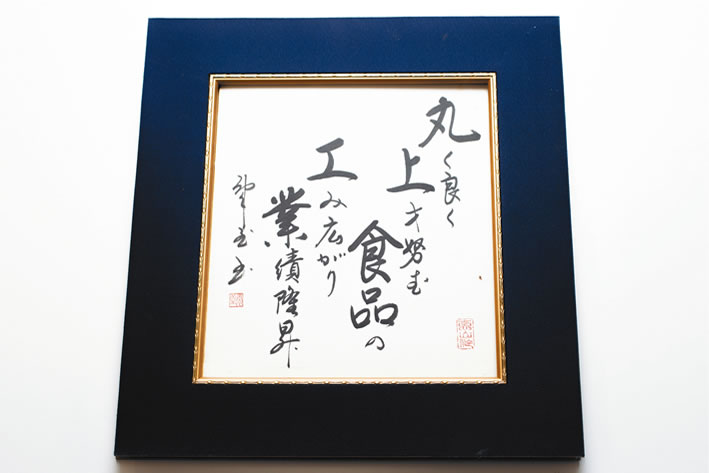 丸く良く
上才努む
食品の
工み広がり
業績隆昇